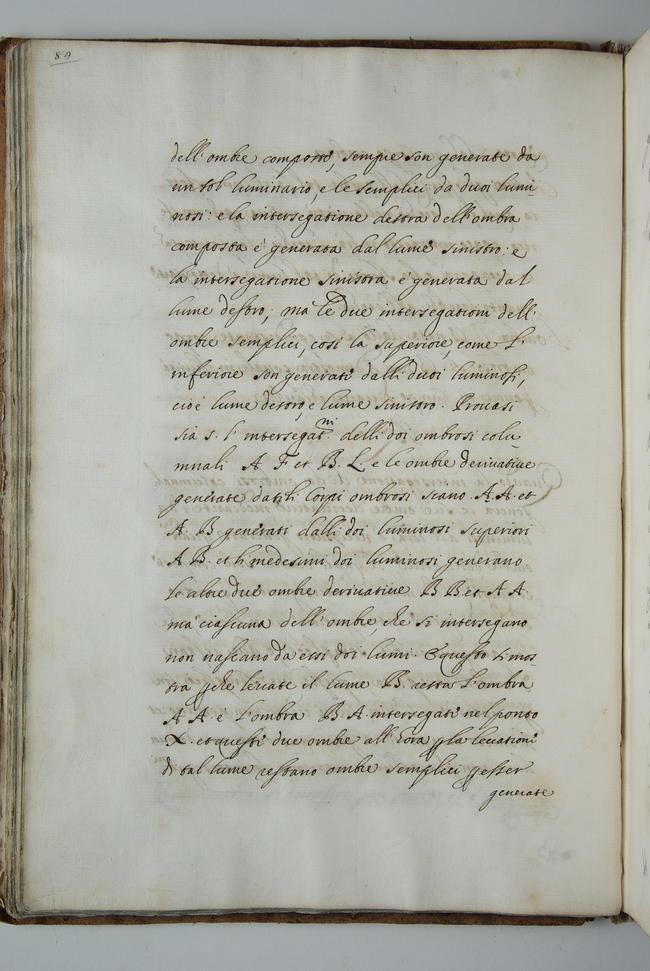 89
dell'ombre composte, sempre son generate da
un sol luminario, e le semplici da duoi lumi-
nosi: e la intersegatione destra dell'ombra
composta è generata dal lume sinistro: e
la intersegatione sinistra è generata dal
lume destro; ma le due intersegationi dell'
ombre semplici, così la superiore, come l'
inferiore son generati dalli duoi luminosi,
cioè lume destro, e lume sinistro. Provasi
sia s. l'intersegat.ni delli doi ombrosi colu-
mnali A. F et B. L. e le ombre derivative
generate da tili Corpi ombrosi siano A. A. et
A. B. generati dalli doi luminosi superiori
A B. et li medesimi doi luminosi generano
le altre due ombre derivative B B. et A A.
ma ciascuna dell'ombre, che si intersegano
non nascano da essi doi lumi. E questo si mos-
tra pche levate il lume B. resta l'ombra
A A. è l'ombra B A. intersegati nel ponto
X. et questi due ombre all'hora p la levationi
di tal lume restano ombre semplici p esser
generate